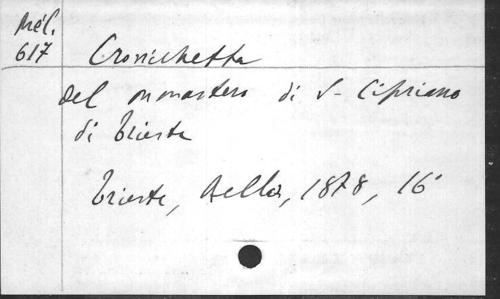 Mél.
617
Cronichetta
del monastero di S. Cipriano
di Trieste
Trieste, Aellos, 1878, 16°